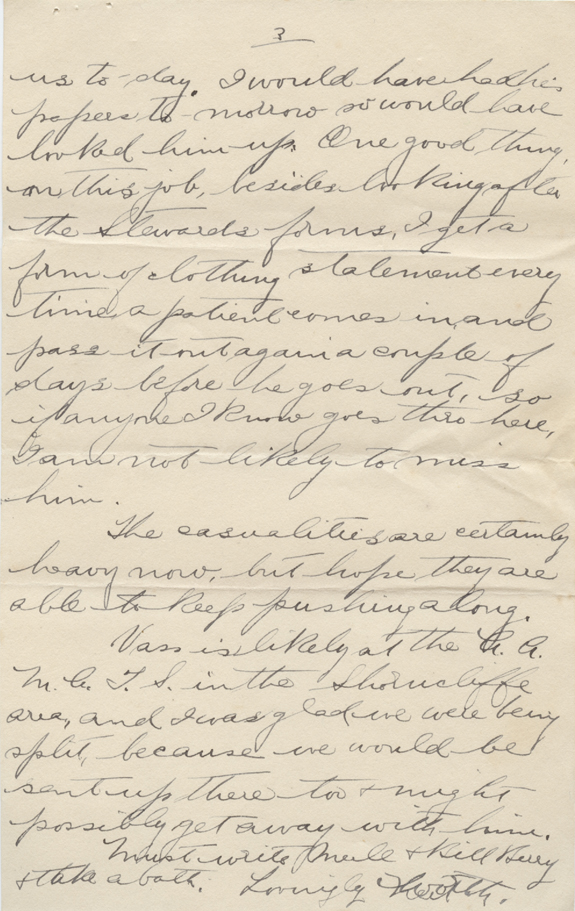 3
us to-day. I would have had his
papers to-morrow so would have
looked him up. One good thing,
on this job, besides looking after
the Stewards forms, I get a
form of clothing statement every
time a patient comes in and
pass it out again a couple of
days before he goes out, so
if anyone I know goes thro here,
I am not likely to miss
him.
The casualities are certainly
heavy now, but hope they are
able to keep pushing along.
Vass is likely at the C. A.
M. C. T. S. in the Shorncliffe
area, and I was glad we were being
split, because we would be
sent up there too & might
possibly get away with him.
Must write Merle & Bill Berry
& take a bath. Lovingly